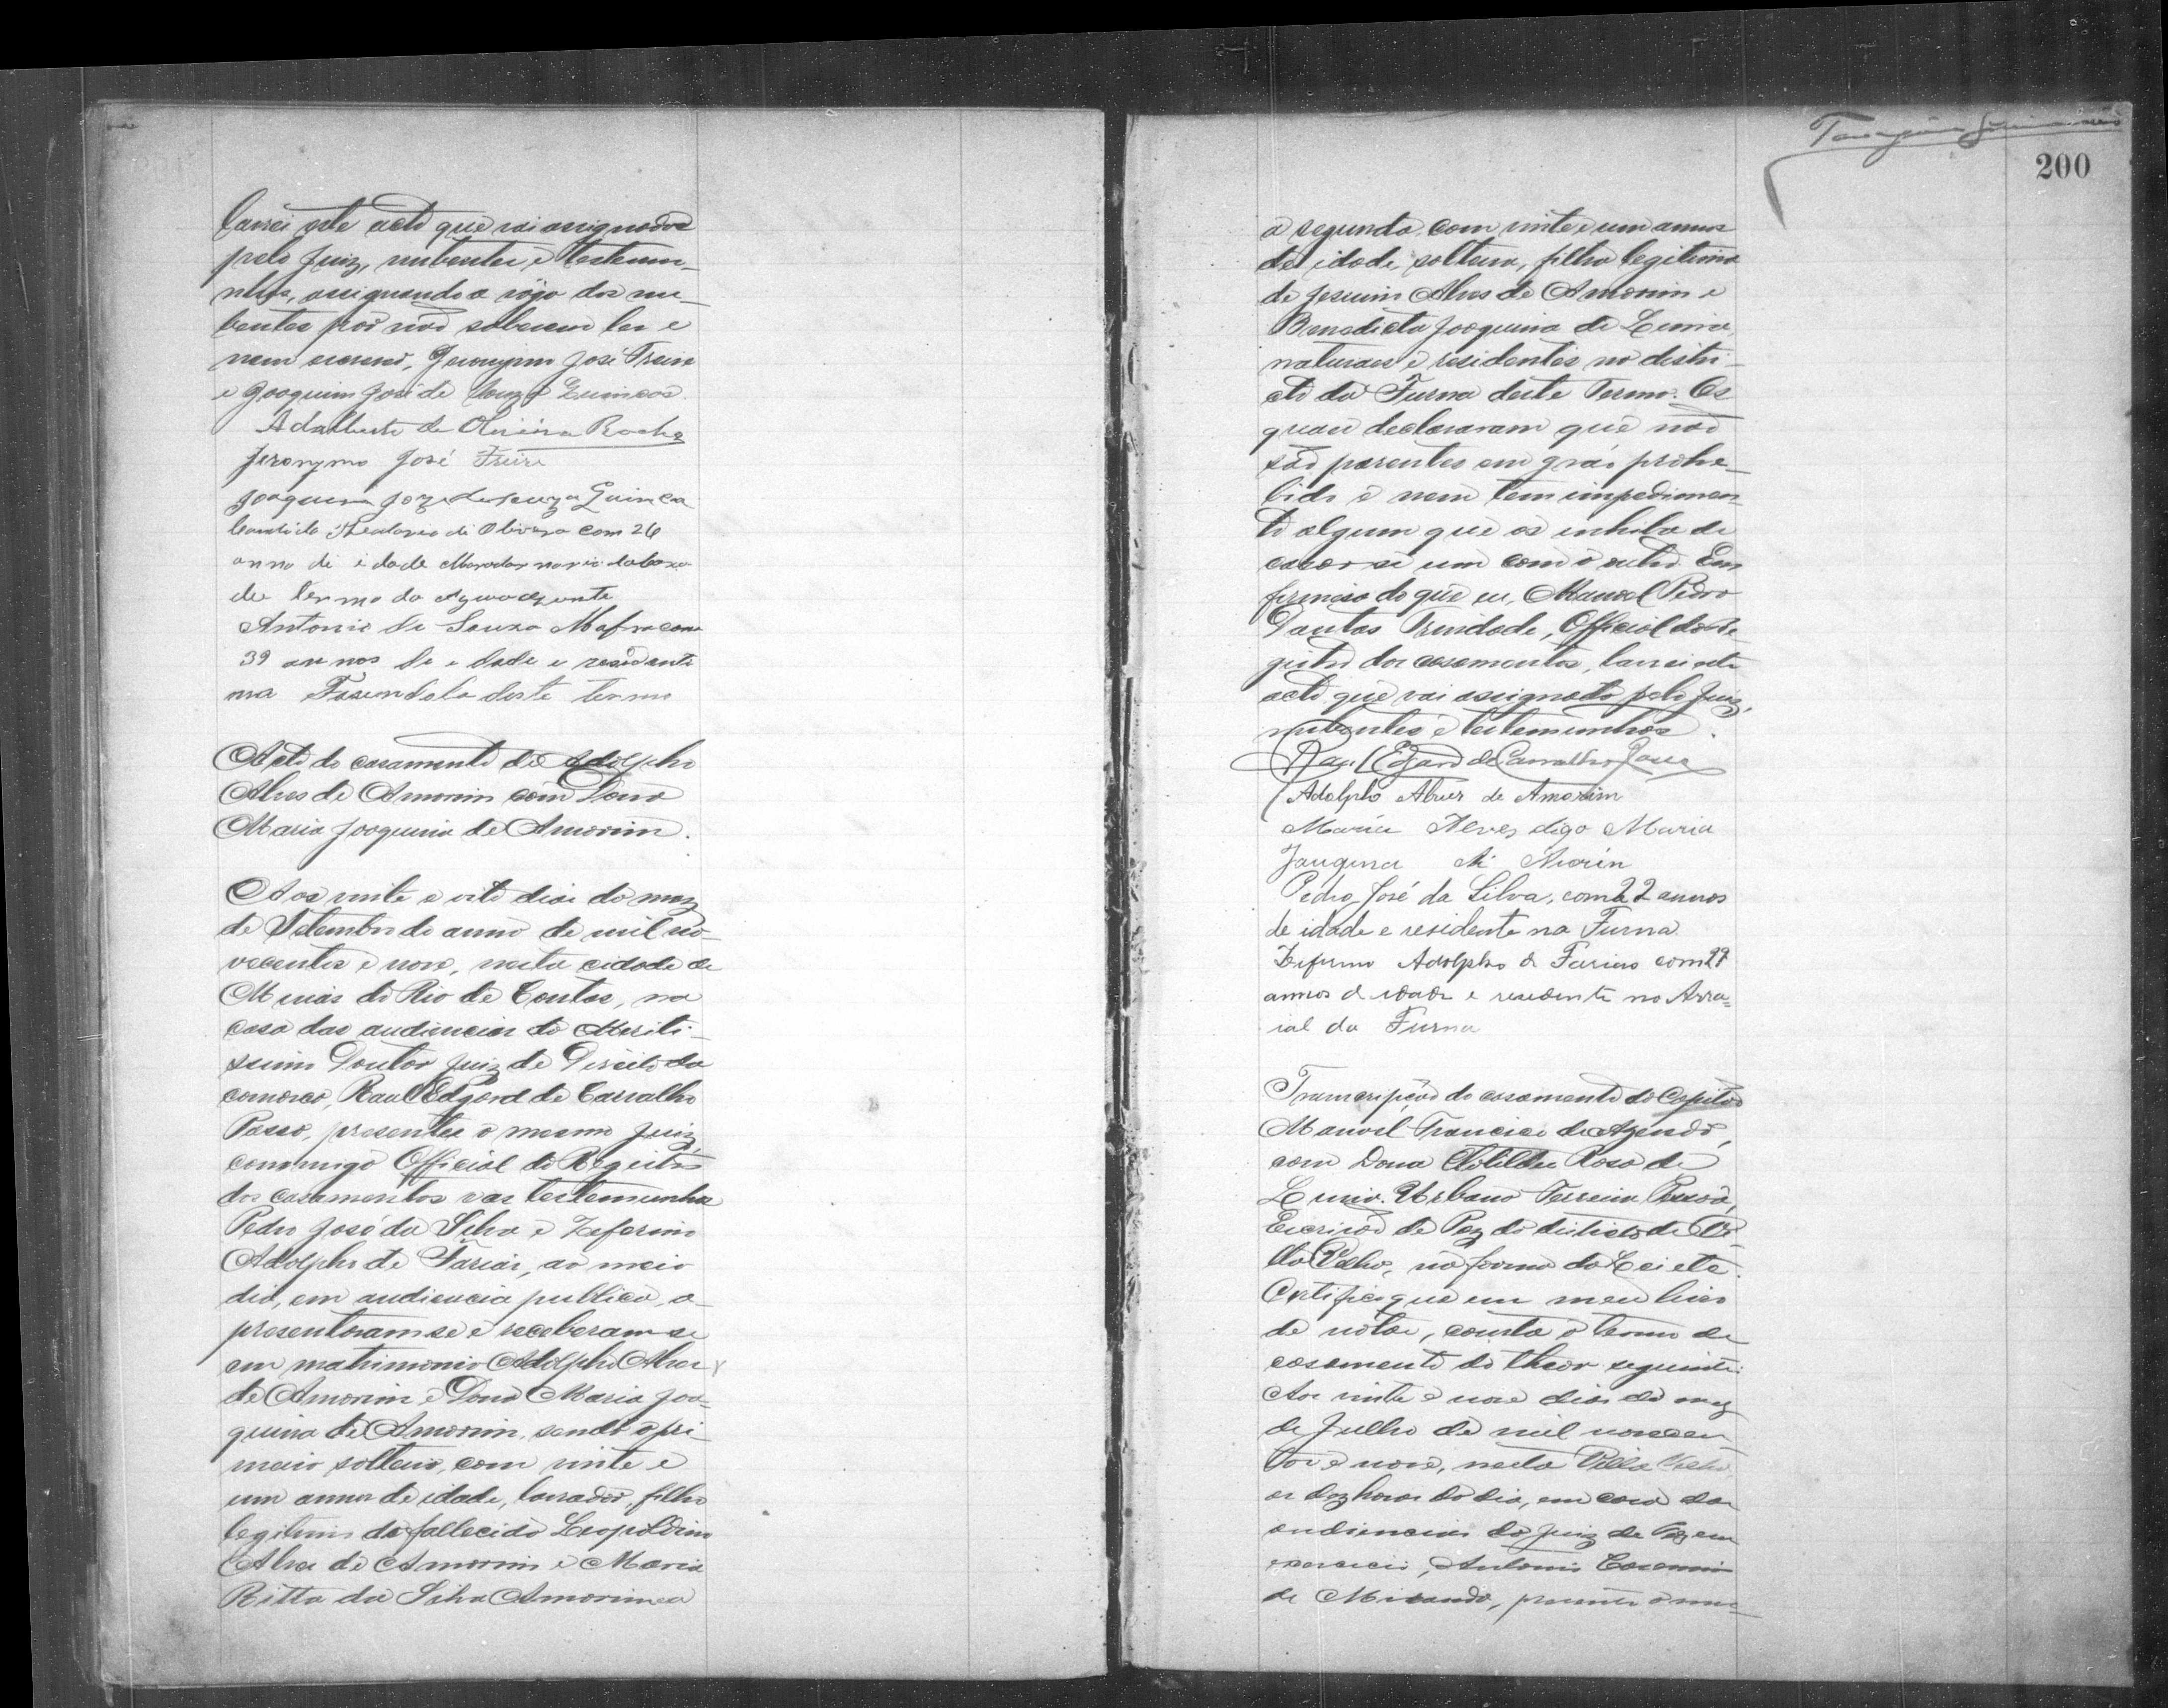 lavrei este acto que vai assignados
pelo Juiz, nubentes e testemu-
nhas, assignando a rogo dos nu-
bentes por não saberem ler e
nem escrever, Jeronymo José Freire
e Joaquim José de Souza Guineos.
Adalberto de Oliveira Rocha
Jeronymo José Freire
Joaquim Joze de souza Guinea
de Olivera com 26
anno di idade Morador
de termo da
Antonio de Souza Mafra com
39 annos de edade e residente
na deste termo
Acto do casamento de Adolpho
Alves de Amorim com Dona
Maria Joaquina de Amorim.
Aos vinte e oito dias do mez
de Setembro do anno de mil no-
vecentos e nove, nesta cidade de
Minas do Rio de Contas, na
casa das audiencias do Meriti-
ssimo Doutor Juiz de Direito da
comarca, Raul Edgard de Carvalho
Passo, presentes o mesmo Juiz,
commigo Official do Registro
dos casamentos e as testemunhas
Pedro José da Silva e Zeferino
Adolpho de Farias, ao meio
dia, em audiencia publica, a-
presentaram-se e receberam-se
em matrimonio Adolpho Alves
de Amorim e Dona Maria Joa-
quina de Amorim, sendo o pri-
meiro solteiro, com vinte e
um annos de idade, lavrador, filho
legitimo do fallecido Leopoldino
Alves de Amorim e Maria
Ritta da Silva Amorim e a
200
a segunda com vinte e um annos
de idade, solteira, filha legitima
de Jesuino Alves de Amorim e
Benedicta Joaquina de Lima,
naturaes e residentes no distri-
cto da Furna deste Termo. Os
quaes declararam que não
são parentes em gráo prohi-
bido e nem tem impedimen-
to algum que os inhiba de
casar-se um com o outro. Em
firmesa do que eu, Manoel Pedro
Dantas Trindade, Official do Re-
gistro dos casamentos, lavrei este
acto que vai assignado pelo Juiz,
nubentes e testemunhas.
Raul Edgard de Carvalho
Adolpho Alves de Amorim
Maria Alves digo Maria
Pedro José da Silva, com 22 annos
de idade e residente na Furna.
Zeferino Adolpho de Farias com 27
annos de idade e residente no Arra=
ial da Furna
Transcripção do casamento do Capitão
Manoel Francisco de Azevedo,
com Dona Clotildes Rosa de
Urbano Ferreira
Escrivão de Paz do districto de Vi-
lla Velha, na forma da Lei etc.
Certifico que em meu livro
de notas, consta o termo de
casamento do theor seguinte:
Aos vinte e nove dias do mez
de Julho de mil novecen
tos e nove, nesta Villa Velha,
as dez horas do dia, em casa das
audiencias do Juiz de Paz em
exercicio, Antonio
de Miranda, presente o mes-